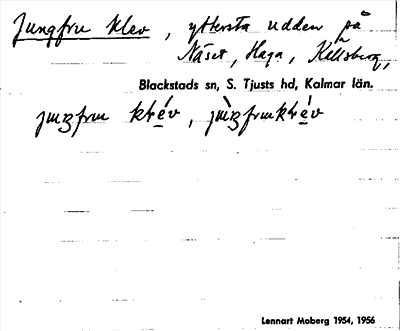 Jungfru klev, yttersta udden på
Näset, Haga, Källsberg,
Blackstads sn, S. Tjusts hd, Kalmar län.
juŋfru klév, jùŋfruklév
Lennart Moberg 1954, 1956